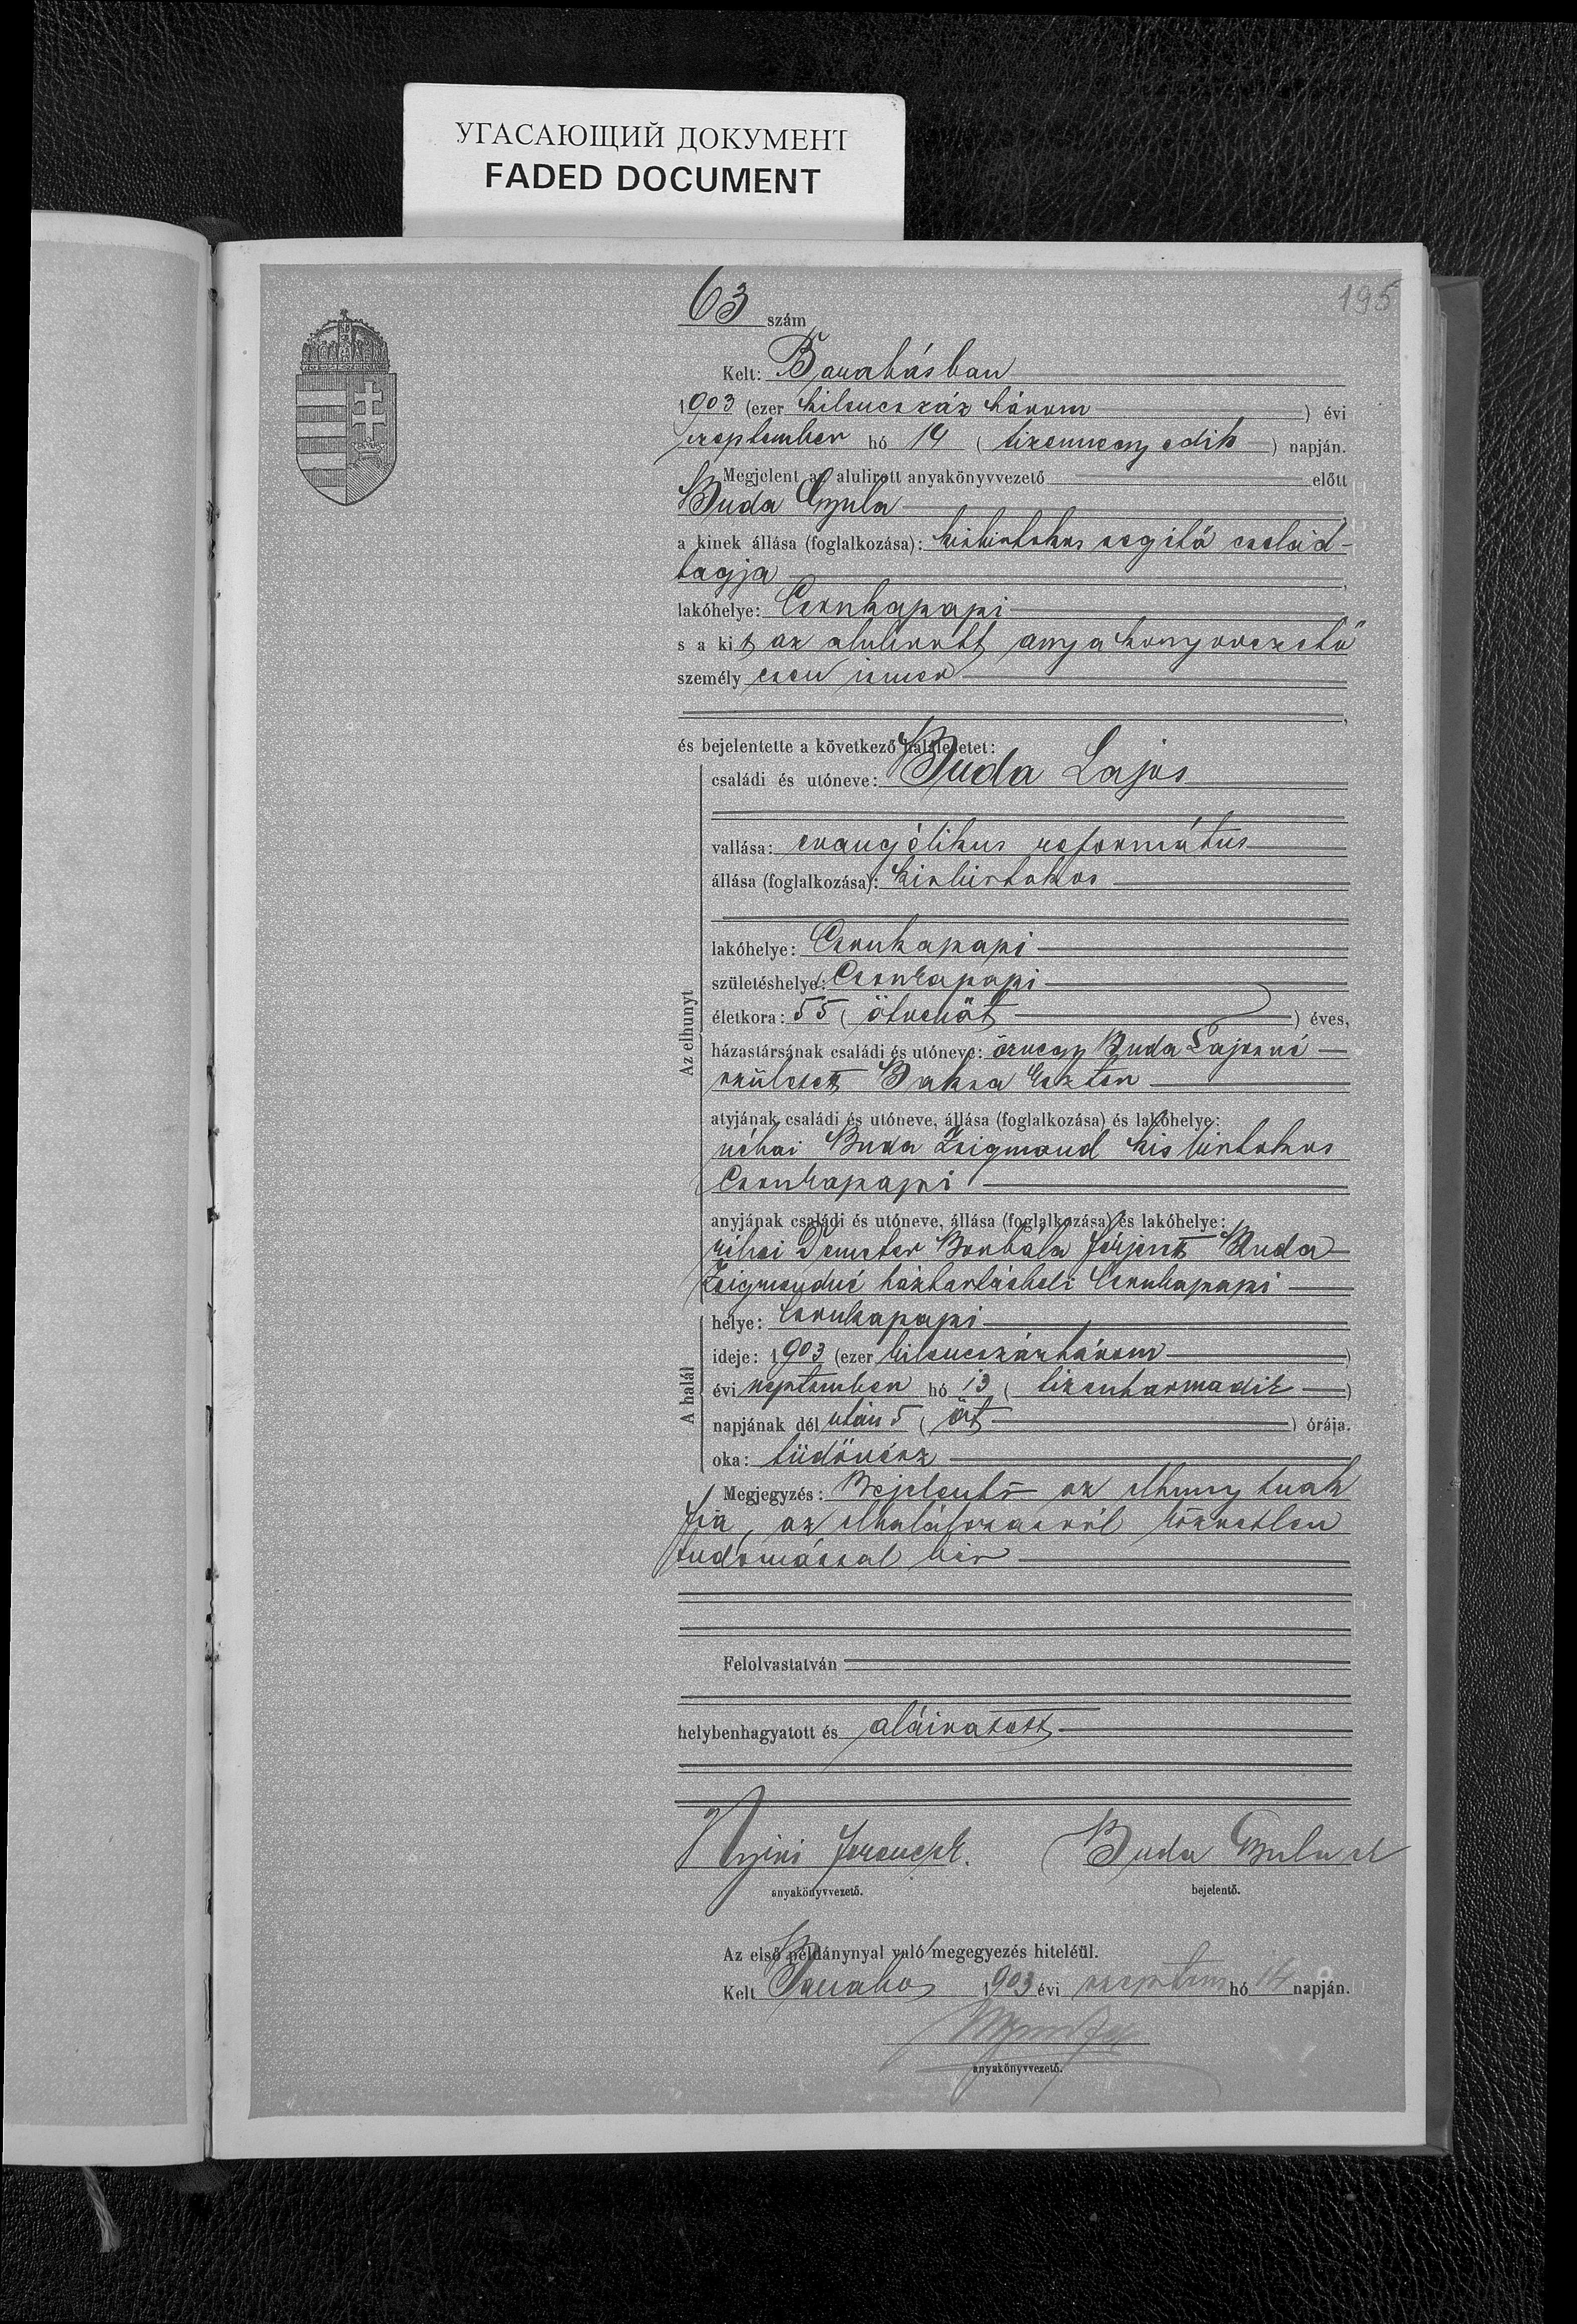 УГАСАЮЩИЙ ДОКУМЕНТ
FADED DOCUMENT
195
63 szám
Kelt: Barabásban
1903 (ezer kilenczszáz három) évi
szeptember hó 14 (tizennegyedik) napján.
Megjelent az alulirott anyakönyvvezető előtt
Buda Gyula
a kinek állása (foglalkozása): kisbirtokos segitő család-
tagja,
lakóhelye: Csonkapapi
s a kit az alulirott anyakönyvvezető
személyesen ismer
,
és bejelentette a következő halálesetet:
Az elhunyt
családi és utóneve: Buda Lajos
vallása: evangélikus református
állása (foglalkozása): kisbirtokos
lakóhelye: Csonkapapi
születéshelye: Csonkapapi
életkora: 55 (ötvenöt) éves,
házastársának családi és utóneve: özvegy Buda Lajosné
született Baksa Eszter
atyjának családi és utóneve, állása (foglalkozása) és lakóhelye:
néhai Buda Zsigmond kisbirtokos
Csonkapapi
anyjának családi és utóneve, állása (foglalkozása) és lakóhelye:
néhai Demeter Borbála férjezett Buda
Zsigmondné háztartásbeli Csonkapapi
A halál
helye: Csonkapapi
ideje: 1903 (ezer kilenczszázhárom)
évi szeptember hó 13 (tizenharmadik)
napjának délután 5 (öt) órája.
oka: tüdővész
Megjegyzés: Bejelentő az elhunytnak
fia, az elhalálozásról közvetlen
tudomással bir
Felolvastatván
helybenhagyatott és aláiratott
Ferencz Buda Gyula
anyakönyvvezető. bejelentő.
Az első példánynyal való megegyezés hiteléül.
Kelt Barabás 1903 évi szeptem hó 14 napján.
anyakönyvvezető.